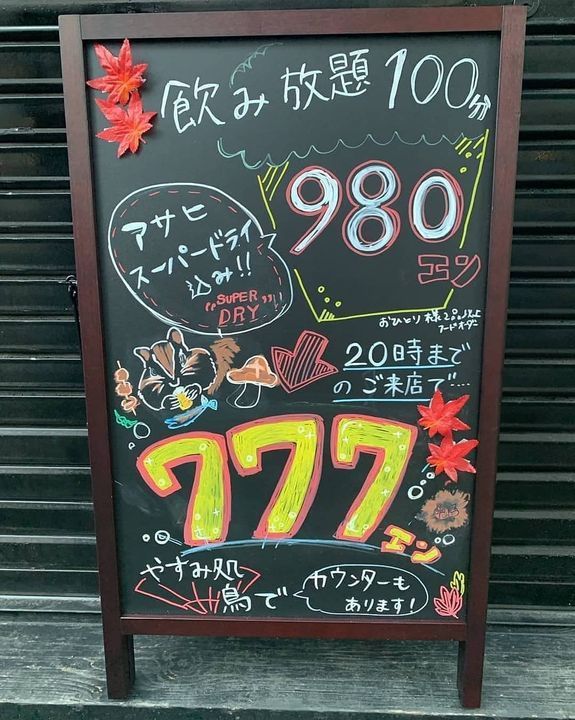 飲み放題100分
980
エン
アサヒ
スーパードライ
込み!!
"SUPER"
DRY
おひとり様2品以上
フードオーダー
20時まで
のご来店で…
777
エン
やすみ処
鳥で
カウンターも
あります!